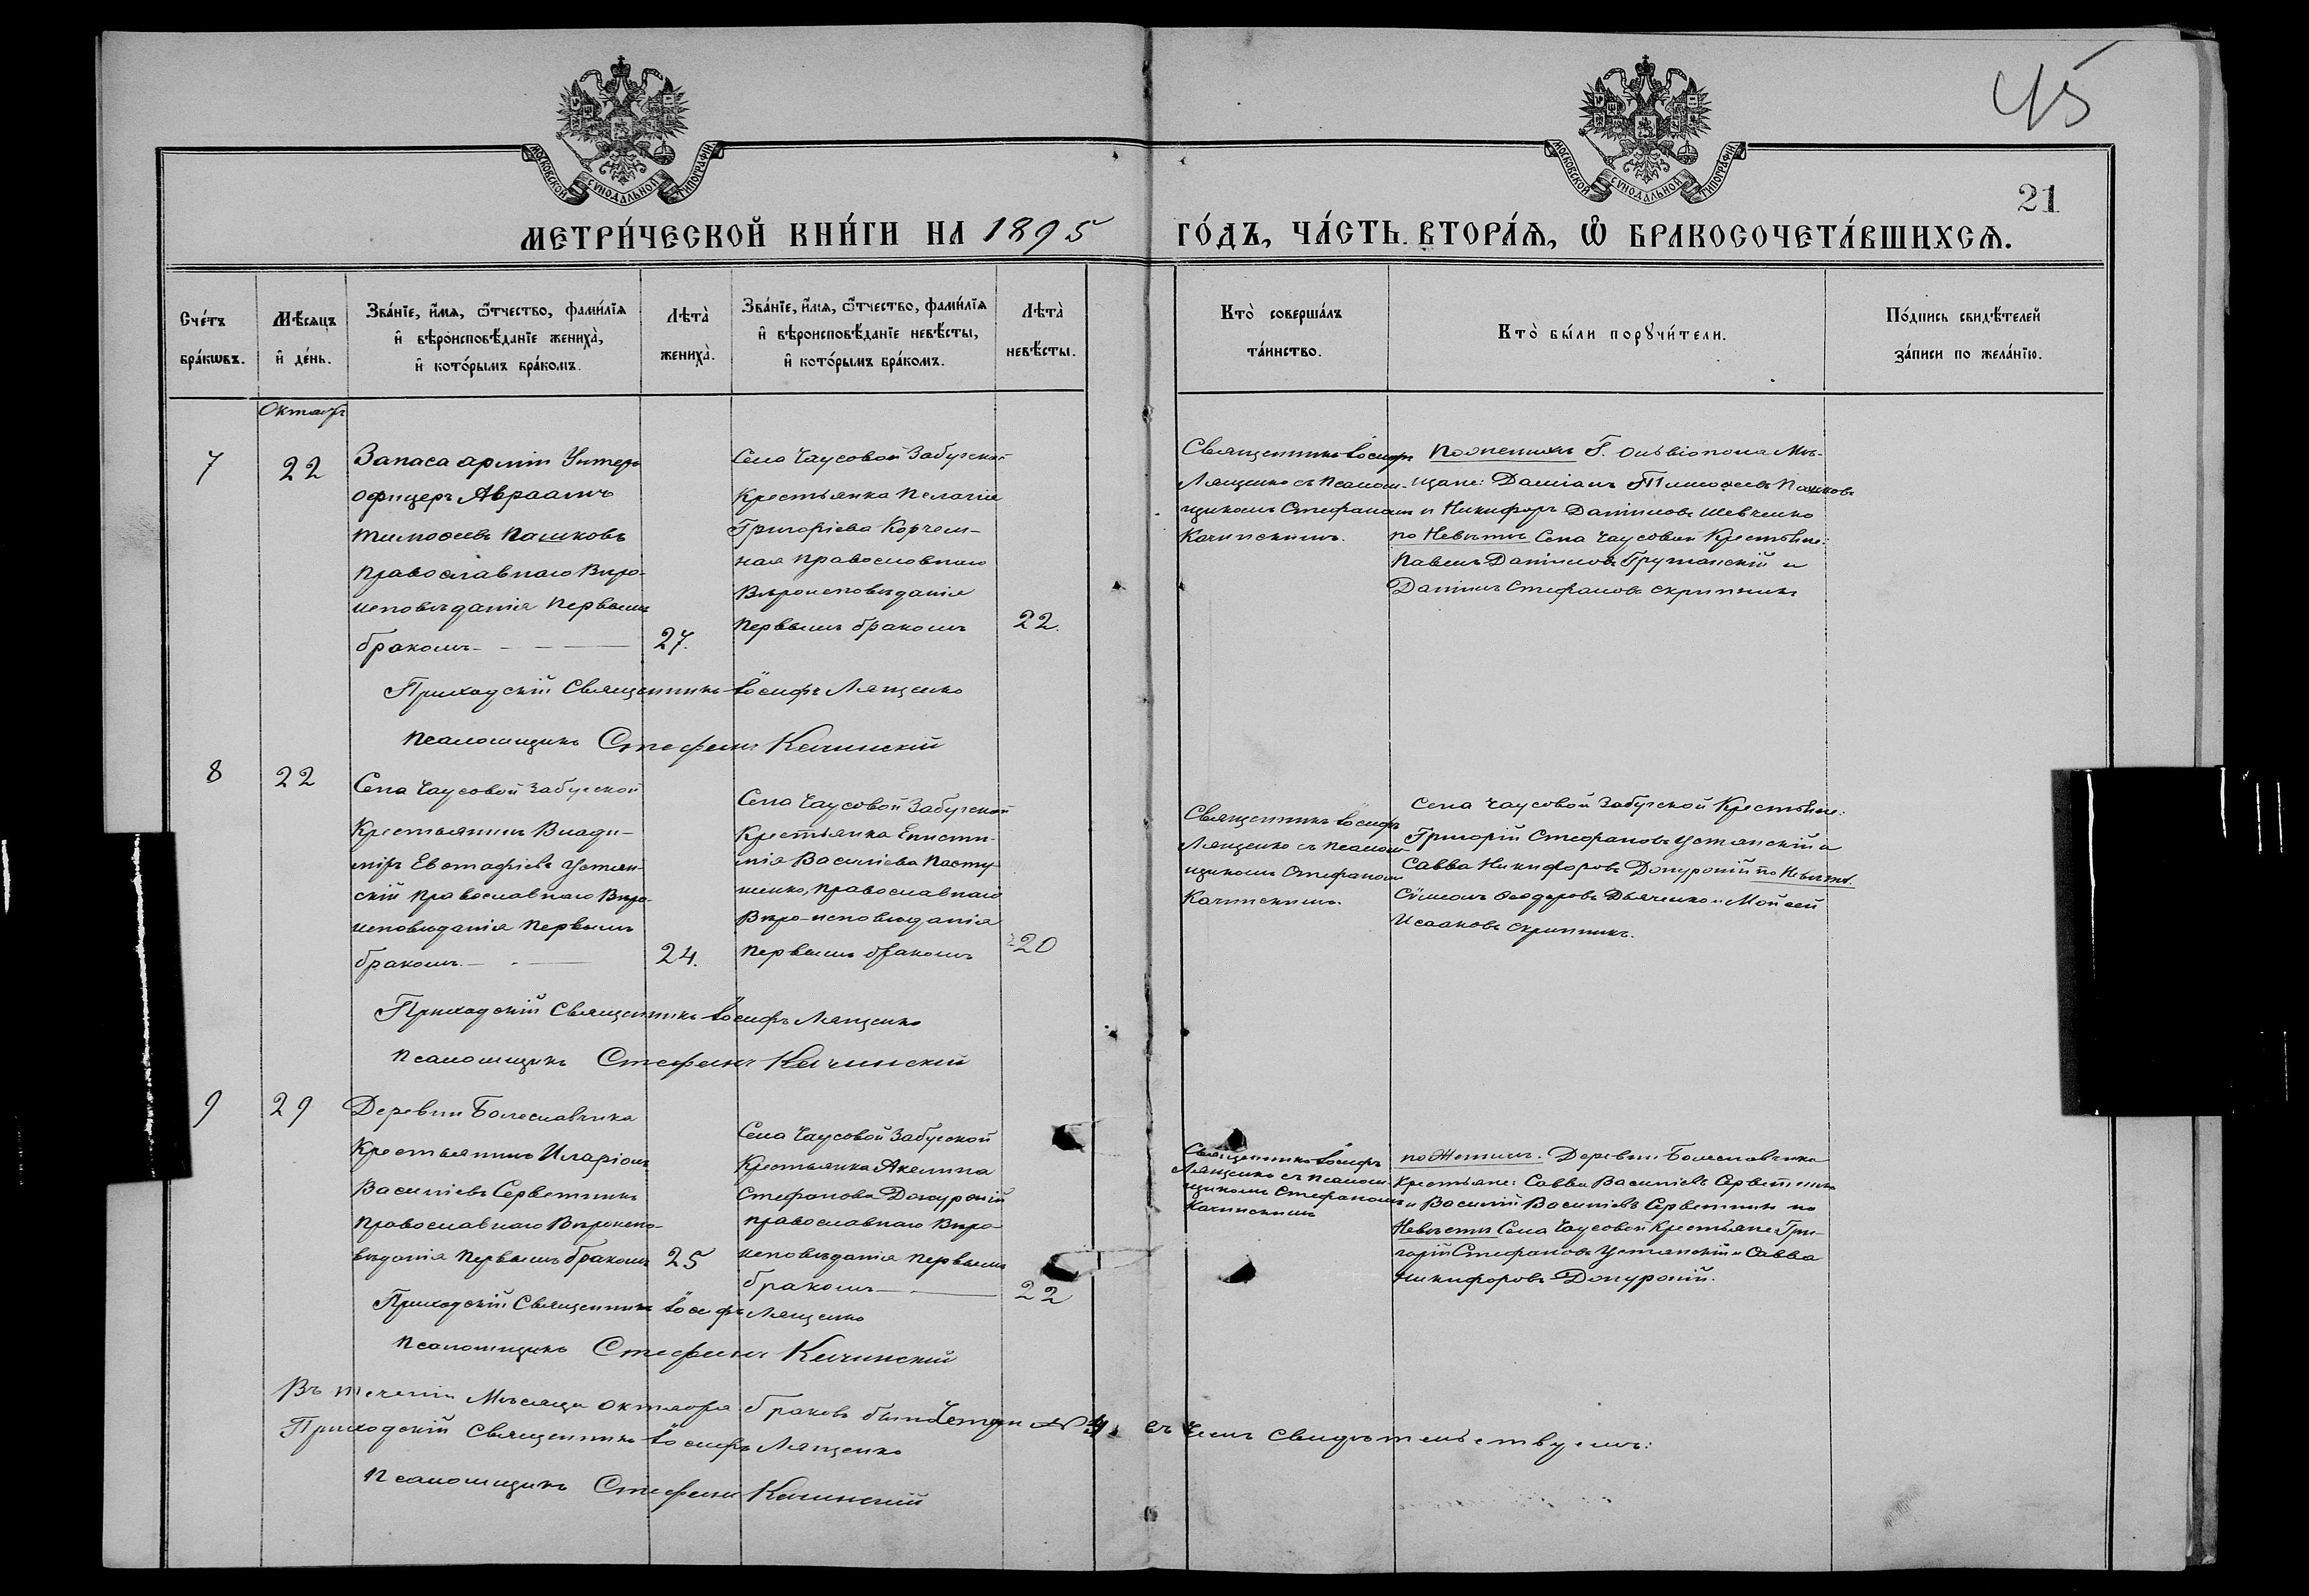 45
21
МОСКОВСКОЙ СѴНОДАЛЬНОЙ ТИПОГРАФІИ
МОСКОВСКОЙ СѴНОДАЛЬНОЙ ТИПОГРАФІИ
МЕТРИ́ЧЕСКОЙ КНИ́ГИ НА 1895 ГО́ДЪ, ЧА́СТЬ ВТОРА́Ѧ, Ѡ҆ БРАКОСОЧЕТА́ВШИХСѦ.
Сче́тъ
бра́кѡвъ.
Мѣ́сяцъ
и҆ де́нь.
Зва́нїе, и҆́мѧ, ѻ҆́тчество, фами́лїѧ
и҆ вѣроисповѣ́данїе жениха̀,
и҆ кото́рымъ бра́комъ.
Лѣта̀
жениха̀.
Зва́нїе, и҆́мѧ, ѻ҆́тчество, фами́лїѧ
и҆ вѣроисповѣ́данїе невѣ́сты,
и҆ кото́рымъ бра́комъ.
Лѣта̀
невѣ́сты.
Кто̀ соверша́лъ
та́инство.
Кто̀ бы́ли порꙋчи́тели.
По́дпись свидѣ́телей
за́писи по жела́нїю.
Октабр
7
22
Запаса арміи Унтеръ
офицеръ Авраамъ
Тимоѳеевъ Пашковъ
православнаго Вѣро-
исповѣданія первымъ
бракомъ
27.
Села Чаусовой Забугской
Крестьянка Пелагія
Григоріева Корчем-
ная православнаго
Вѣроисповѣданія
первымъ бракомъ
22.
Священникъ Іосифъ
Лященко съ псаломщ-
щикомъ Стефаномъ
Качинскимъ.
По женихѣ Г. Ольвіополя Мѣ-
щане: Даміанъ Тимоѳеевъ Пашковъ
и Никифоръ Даниловъ Шевченко
по Невѣстѣ Села Чаусовой Крестьяне:
Павелъ Даниловъ Грушанскій и
Даніилъ Стефановъ Скрипникъ
Приходскій Священникъ Іосифъ Лященко
Псаломщикъ Стефанъ Качинскій
8
22
Села Чаусовой Забугской
Крестьянинъ Влади-
міръ Евстафіевъ Устян-
скій православнаго Вѣро-
исповѣданія первымъ
бракомъ
24.
Села Чаусовой Забугской
Крестьянка Еписти-
мія Василіева Пасту-
шенко, православнаго
Вѣро-исповѣданія
первымъ бракомъ
20
Священникъ Іосифъ
Лященко съ псалом-
щикомъ Стефаномъ
Качинскимъ.
Села Чаусовой Забугской Крестьяне:
Григорій Стефановъ Устянскій и
Савва Никифоровъ Доскурскій по Невѣстѣ.
Сѵмеонъ Ѳеодоровъ Дьяченко и Мойсей
Исааковъ Скрипникъ.
Приходскій Священникъ Іосифъ Лященко
Псаломщикъ Стефанъ Качинскій
9
29
Деревни Болеславчика
Крестьянинъ Иларіонъ
Василіевъ Серветникъ
православнаго Вѣроиспо-
вѣданія первымъ бракомъ
25
Села Чаусовой Забугской
Крестьянка Акелина
Стефанова
православнаго Вѣро-
исповѣданія первымъ
бракомъ
22
Священникъ Іосифъ
Лященко съ псалом-
щикомъ Стефаномъ
Качинскимъ
по Жених. Деревни Болеславчика
Крестьяне: Савва Василіевъ Серветникъ
и Василій Василіевъ Серветник по
Невѣстѣ Села Чаусовой Крестьяне Гри-
горій Стефановъ Устянскій и Савва
Никифоровъ
Приходскій Священникъ Іосифъ Лященко
Псаломщикъ Стефанъ Качинскій
Въ теченіи Мѣсяца октября браковъ было Четыре № 4, въ чемъ свидѣтельствуемъ:
Приходскій Священникъ Іосифъ Лященко
Псаломщикъ Стефанъ Качинскій